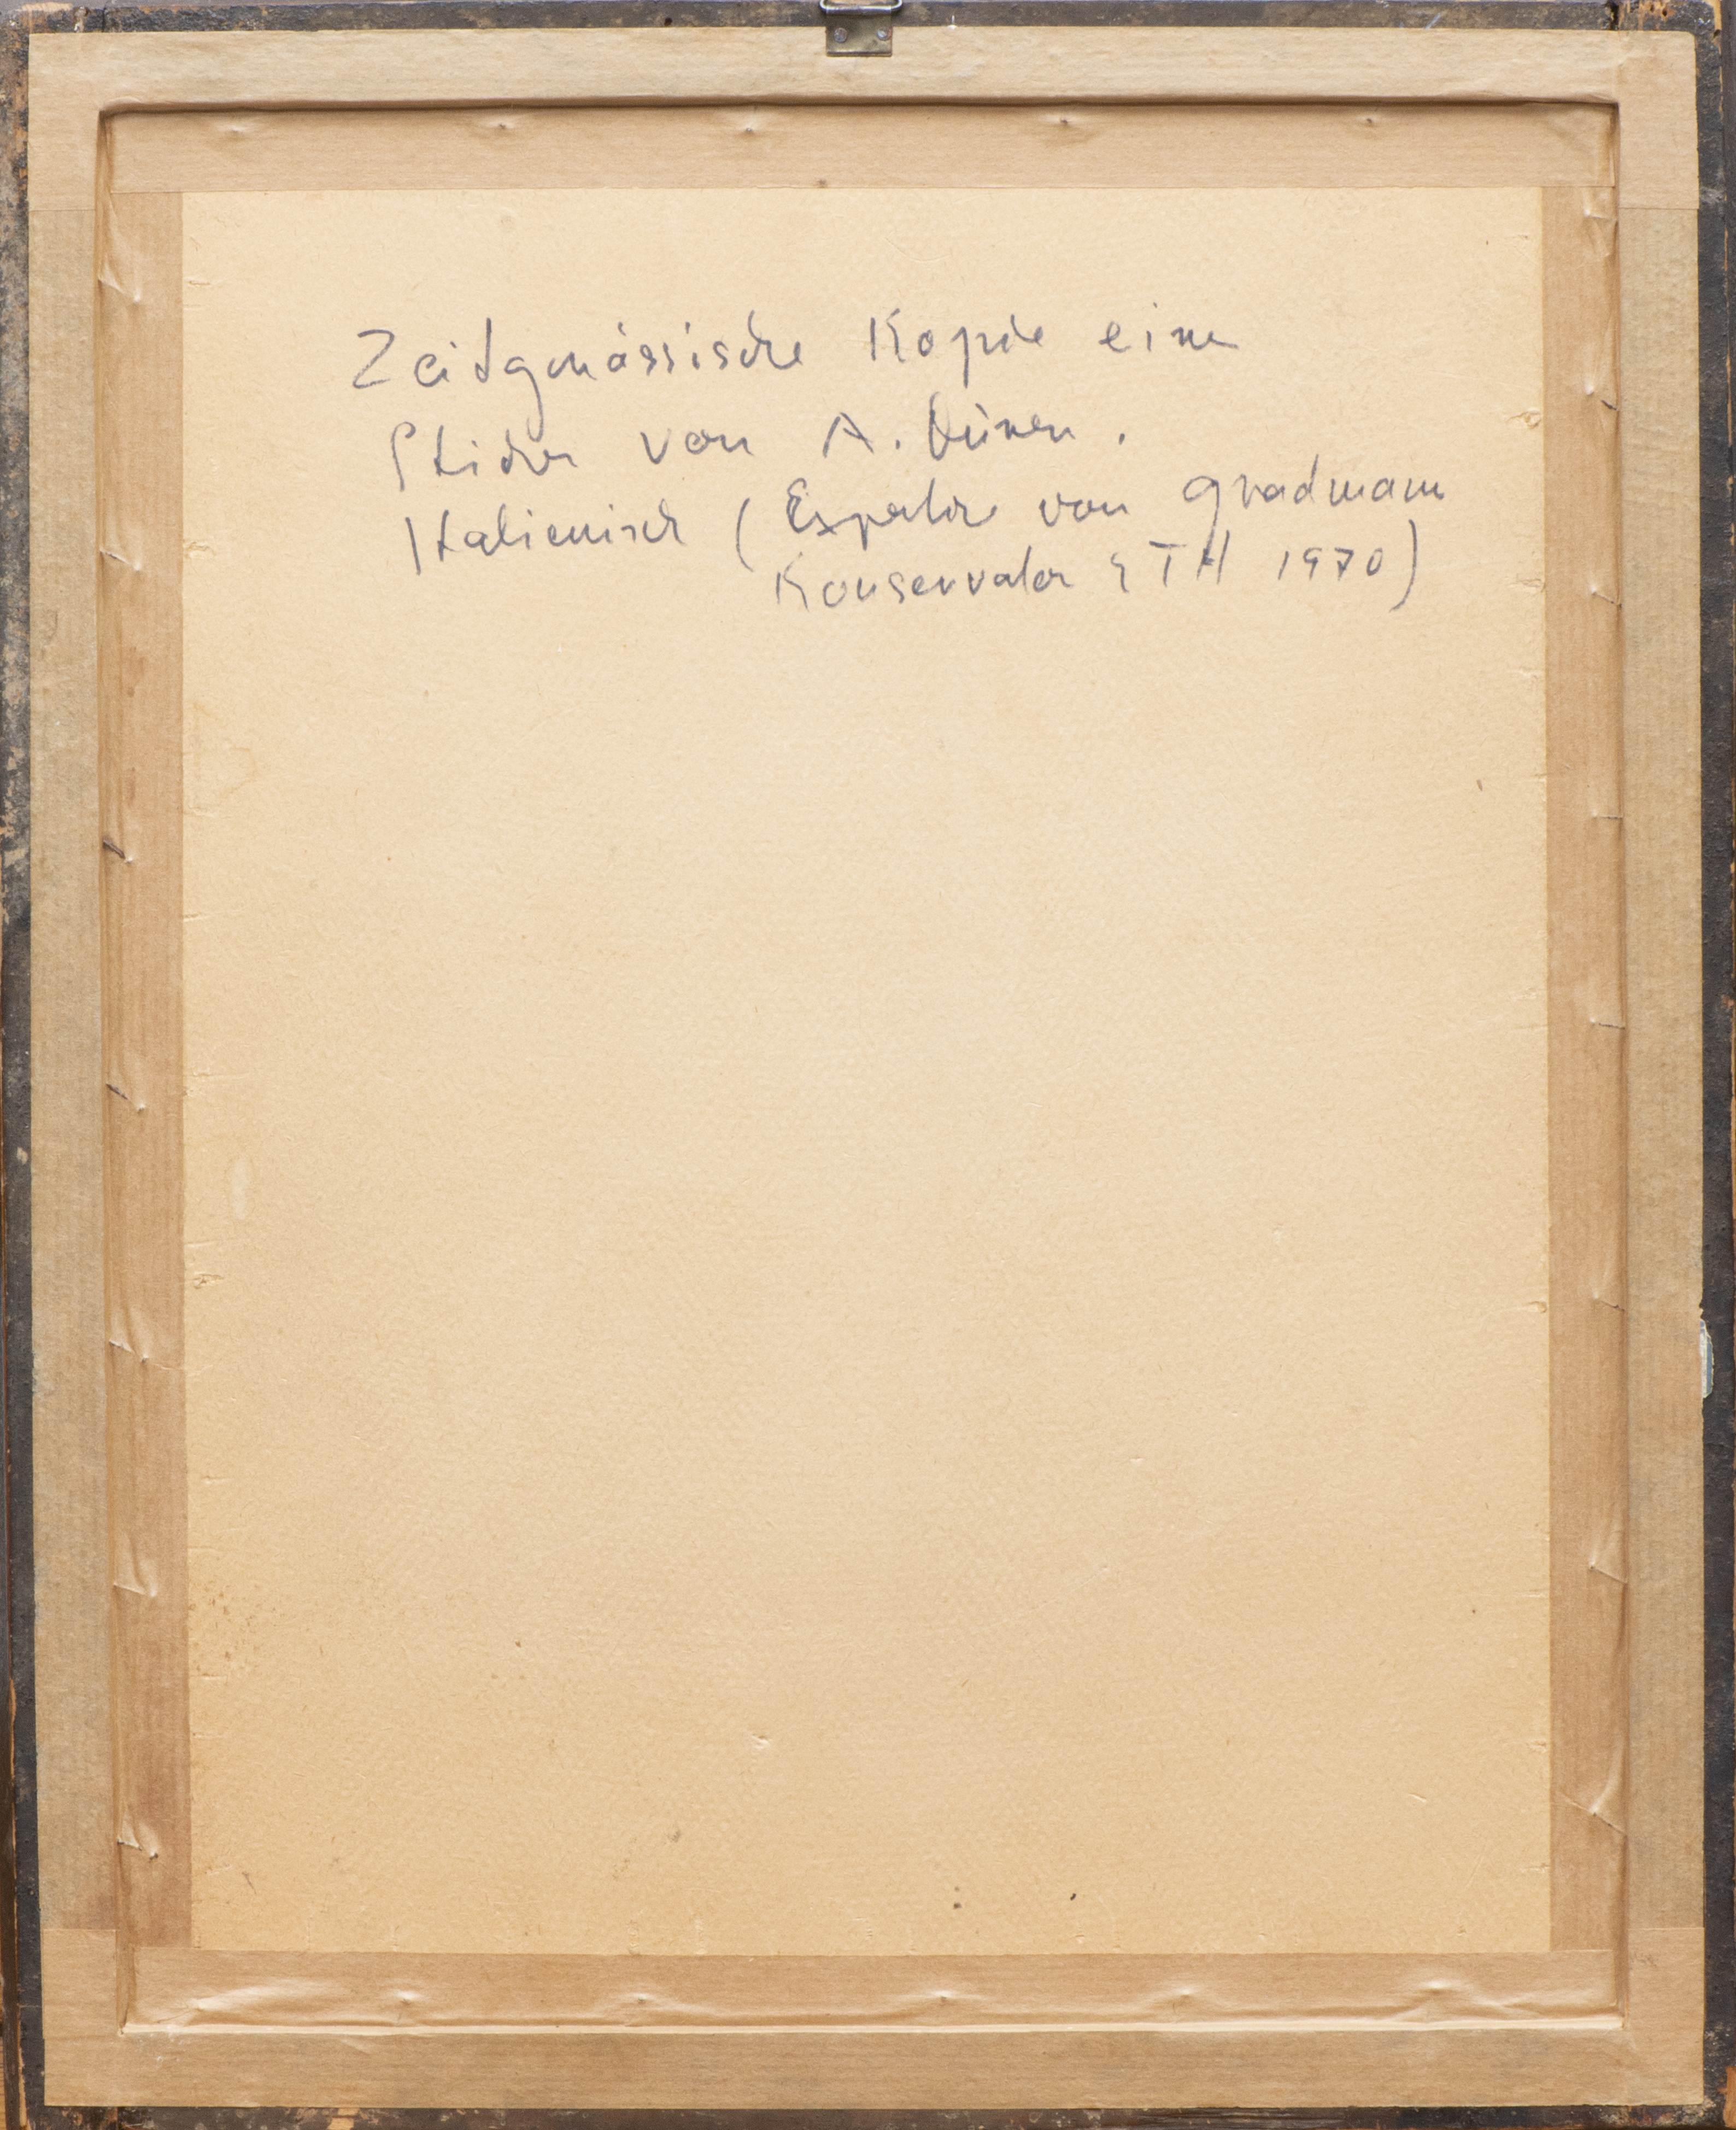 Zeitgenössische Kopie eines
Stiches von A. Dürer.
Italienisch (Expertise von Gradmann
Konservator ETH 1970)